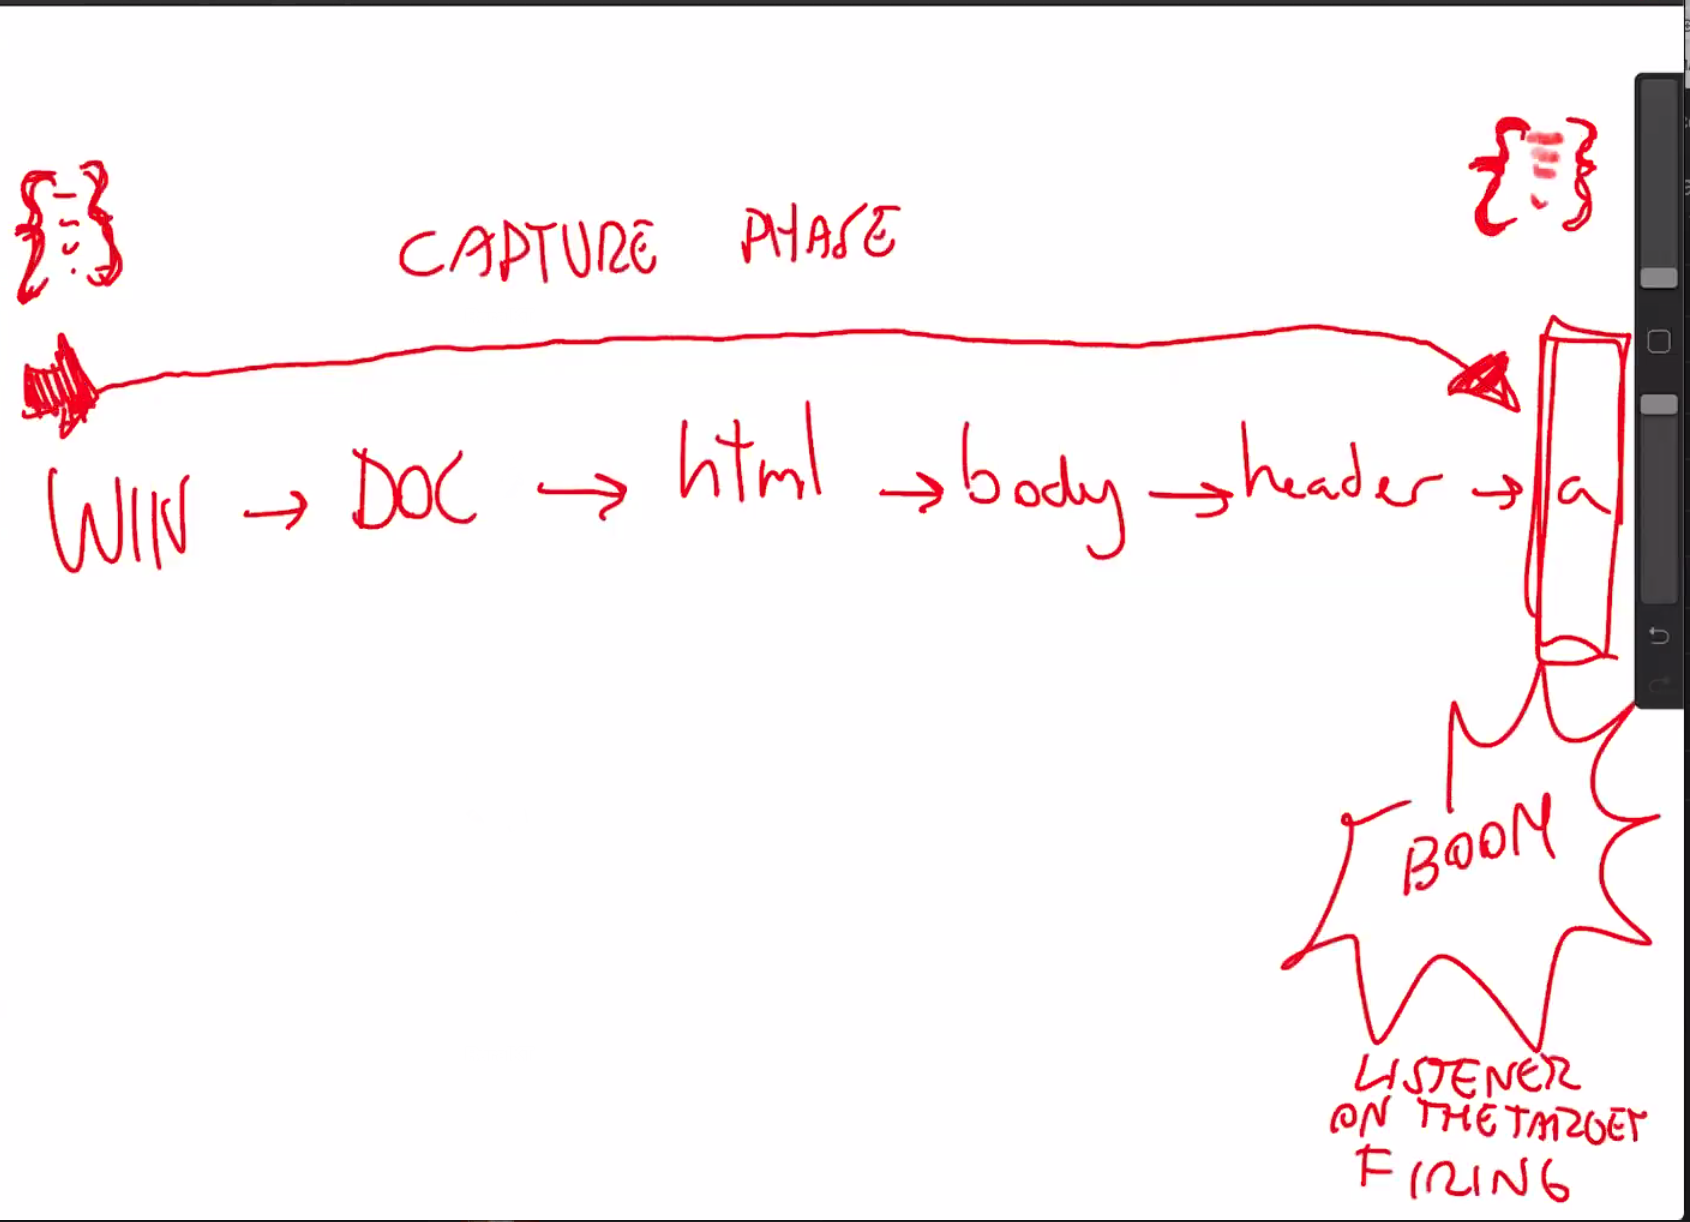 CAPTURE PHASE
WIN → DOC → html → body → header → a
BOOM
LISTENER
ON THE TARGET
FIRING